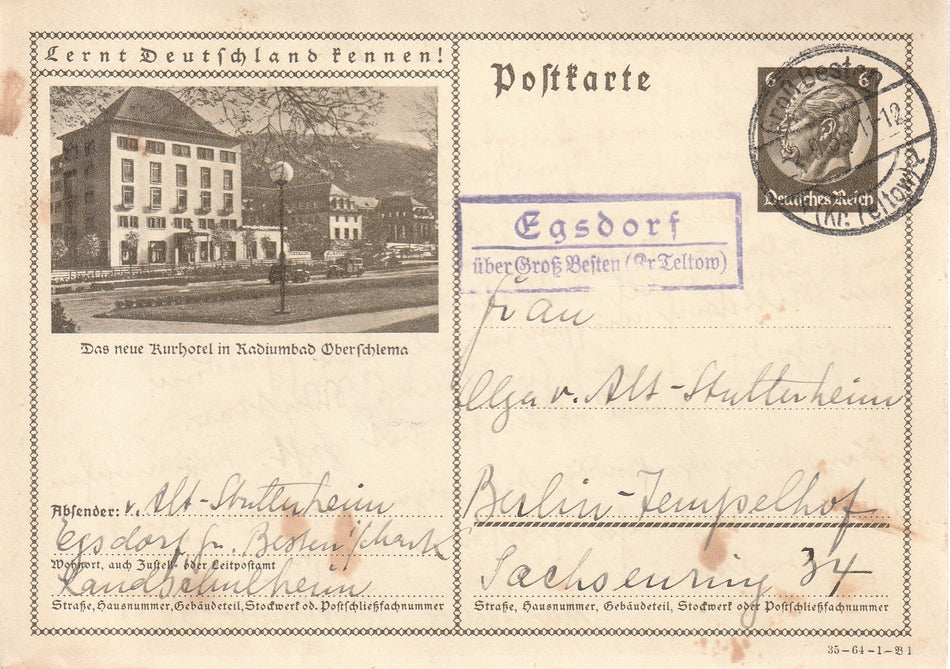 Lernt Deutschland kennen!
Postkarte
6 6
Deutsches Reich
Groß Besten
11-12
(Kr. Teltow)
Egsdorf
über Groß Besten (Kr Teltow)
Das neue Kurhotel in Radiumbad Oberschlema
Frau
Olga v. Alt-Stutterheim
Berlin-Tempelhof
Sachsenring 34
Absender: v. Alt-Stutterheim
Egsdorf Gr. Besten
Wohnort, auch Zustell- oder Leitpostamt
Landschulheim
Straße, Hausnummer, Gebäudeteil, Stockwerk od. Postschließfachnummer
Straße, Hausnummer, Gebäudeteil, Stockwerk oder Postschließfachnummer
35-64-1-B 1